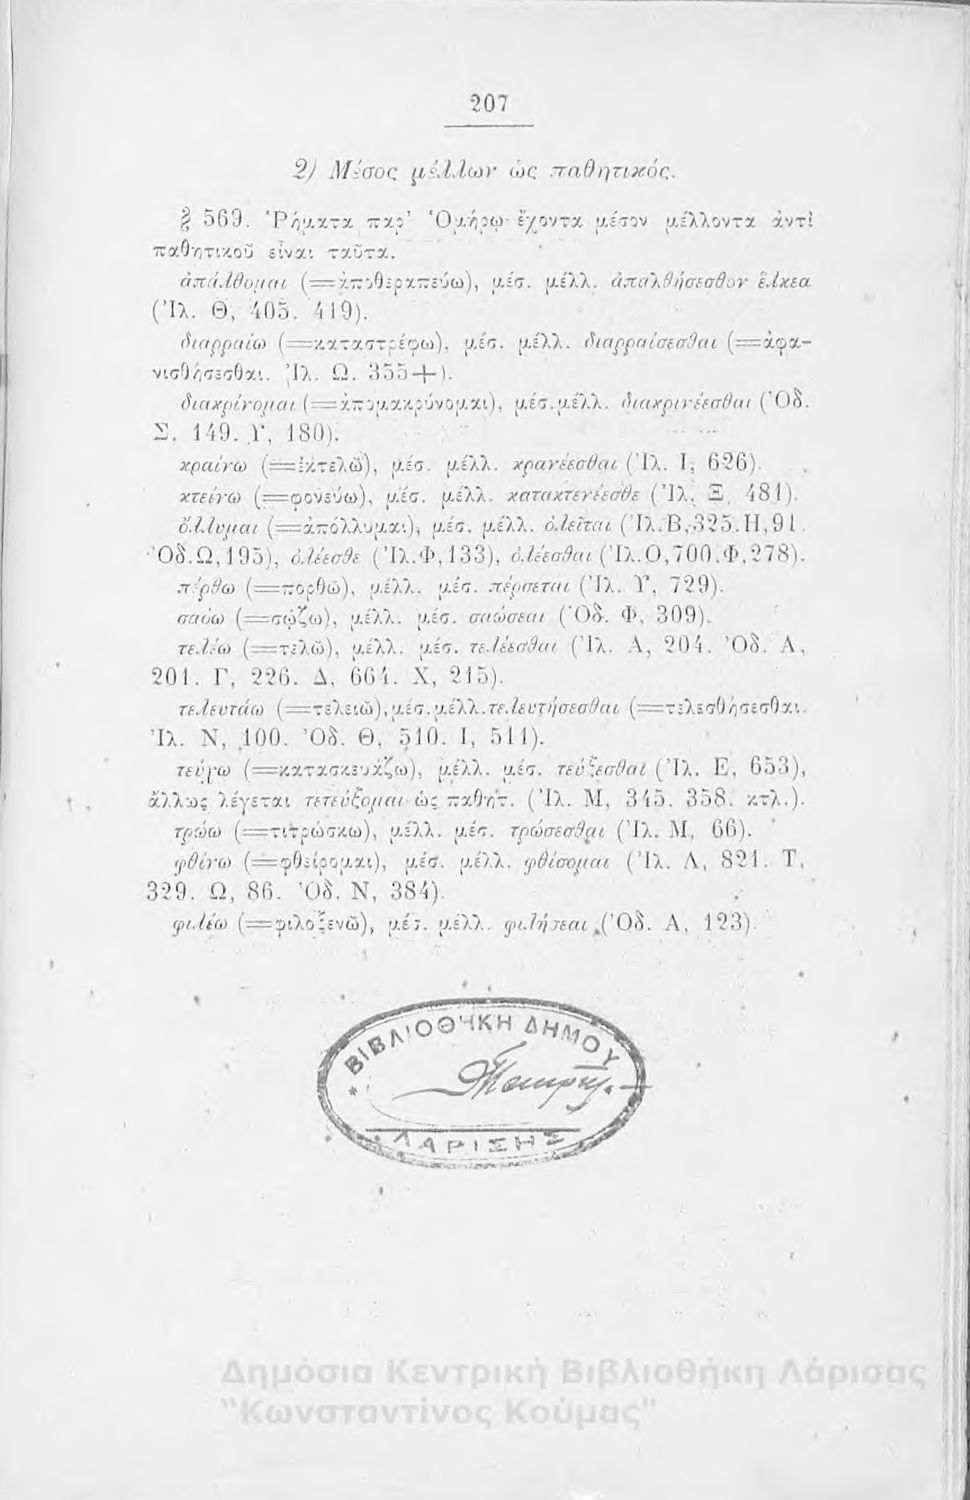 207
2) Μέσος μέλλων ὡς παθητικός.
§ 569. Ῥήματα παρ’ Ὁμήρῳ ἔχοντα μέσον μέλλοντα ἀντὶ
παθητικοῦ εἶναι ταῦτα.
ἀπάλθομαι (=ἀποθεραπεύω), μέσ. μέλλ. ἀπαλθήσεσθον ἕλκεα
(Ἰλ. Θ, 405. 419).
διαρραίω (=καταστρέφω), μέσ. μέλλ. διαρραίσεσθαι (=ἀφα-
νισθήσεσθαι. Ἰλ. Ω. 355+).
διακρίνομαι (=ἀπομακρύνομαι), μέσ.μέλλ. διακρινέεσθαι (Ὀδ.
Σ, 149. Υ, 180).
κραίνω (=ἐκτελῶ), μέσ. μέλλ. κρανέεσθαι (Ἰλ. Ι, 626).
κτείνω (=φονεύω), μέσ. μέλλ. κατακτενέεσθε (Ἰλ. Ξ, 481).
ὄλλυμαι (=ἀπόλλυμαι), μέσ. μέλλ. ὀλεῖται (Ἰλ.Β,325.Η,91.
Ὀδ.Ω,195), ὀλέεσθε (Ἰλ.Φ,133), ὀλέεσθαι (Ἰλ.Ο,700.Φ,278).
πέρθω (=πορθῶ), μέλλ. μέσ. πέρσεται (Ἰλ. Υ, 729).
σαόω (=σῴζω), μέλλ. μέσ. σαώσεαι (Ὀδ. Φ, 309).
τελέω (=τελῶ), μέλλ. μέσ. τελέεσθαι (Ἰλ. Α, 204. Ὀδ. Α,
201. Γ, 226. Δ, 664. Χ, 215).
τελευτάω (=τελειῶ),μέσ.μέλλ.τελευτήσεσθαι (=τελεσθήσεσθαι.
Ἰλ. Ν, 100. Ὀδ. Θ, 510. Ι, 511).
τεύχω (=κατασκευάζω), μέλλ. μέσ. τεύξεσθαι (Ἰλ. Ε, 653),
ἄλλως λέγεται τετεύξομαι ὡς παθητ. (Ἰλ. Μ, 345. 358. κτλ.).
τρώω (=τιτρώσκω), μέλλ. μέσ. τρώσεσθαι (Ἰλ. Μ, 66).
φθίνω (=φθείρομαι), μέσ. μέλλ. φθίσομαι (Ἰλ. Λ, 821. Τ,
329. Ω, 86. Ὀδ. Ν, 384).
φιλέω (=φιλοξενῶ), μέσ. μέλλ. φιλήσεαι (Ὀδ. Α, 123).
ΒΙΒΛΙΟΘΗΚΗ ΔΗΜΟΥ
ΛΑΡΙΣΗΣ
Δημόσια Κεντρική Βιβλιοθήκη Λάρισας
"Κωνσταντίνος Κούμας"